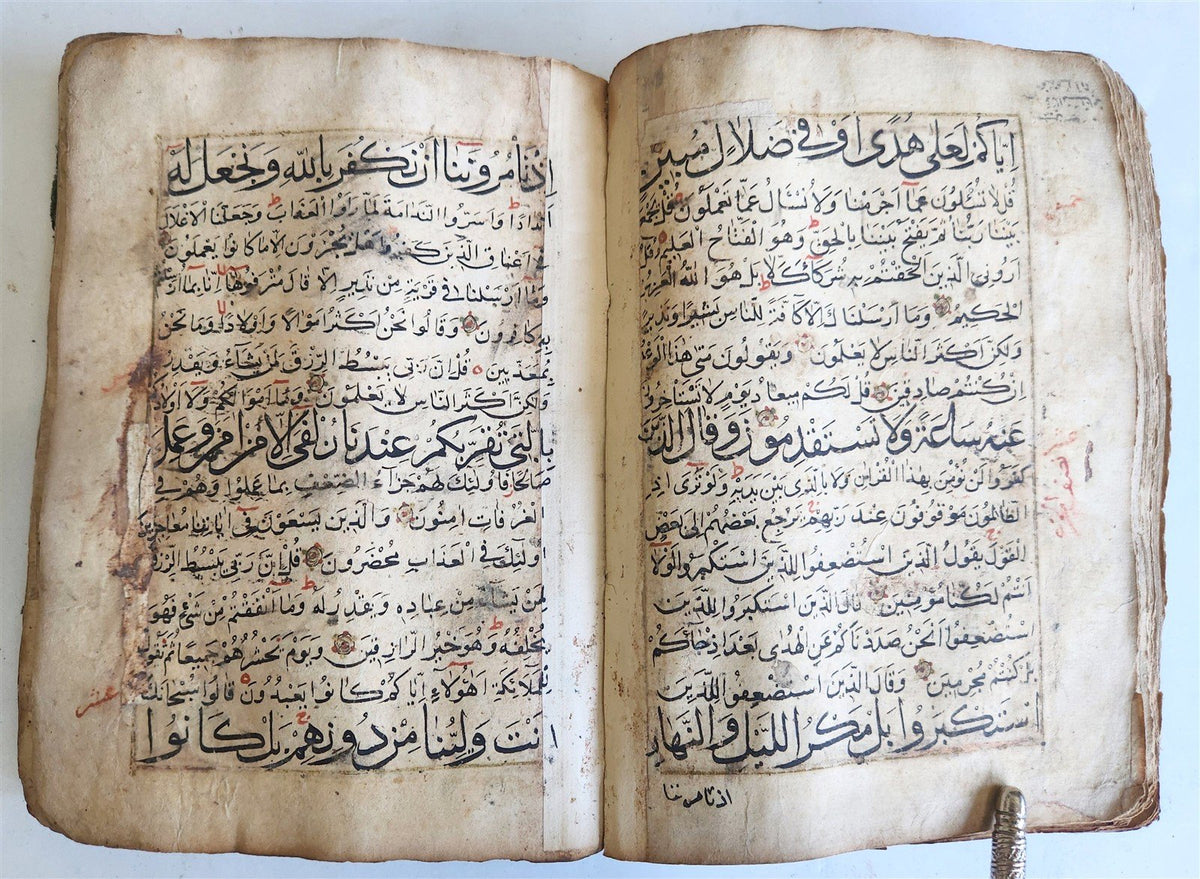 اِيَّاكُمْ لَعَلَى هُدًى اَوْ فِى ضَلَالٍ مُبِينٍ
قُلْ لَا تُسْئَلُونَ عَمَّا اَجْرَمْنَا وَلَا نُسْئَلُ عَمَّا تَعْمَلُونَ قُلْ يَجْمَعُ
بَيْنَنَا رَبُّنَا ثُمَّ يَفْتَحُ بَيْنَنَا بِالْحَقِّ وَهُوَ الْفَتَّاحُ الْعَلِيمُ قُلْ
اَرُونِىَ الَّذِينَ اَلْحَقْتُمْ بِهِ شُرَكَآءَ كَلَّا بَلْ هُوَ اللّٰهُ الْعَزِيزُ
الْحَكِيمُ وَمَا اَرْسَلْنَاكَ اِلَّا كَافَّةً لِلنَّاسِ بَشِيرًا وَنَذِيرًا
وَلٰكِنَّ اَكْثَرَ النَّاسِ لَا يَعْلَمُونَ وَيَقُولُونَ مَتَى هٰذَا الْوَعْدُ
اِنْ كُنْتُمْ صَادِقِينَ قُلْ لَكُمْ مِيعَادُ يَوْمٍ لَا تَسْتَاْخِرُونَ
عَنْهُ سَاعَةً وَلَا تَسْتَقْدِمُونَ وَقَالَ الَّذِينَ
كَفَرُوا لَنْ نُؤْمِنَ بِهٰذَا الْقُرْاٰنِ وَلَا بِالَّذِى بَيْنَ يَدَيْهِ وَلَوْ تَرَى اِذِ
الظَّالِمُونَ مَوْقُوفُونَ عِنْدَ رَبِّهِمْ يَرْجِعُ بَعْضُهُمْ اِلَى بَعْضٍ
الْقَوْلَ يَقُولُ الَّذِينَ اسْتُضْعِفُوا لِلَّذِينَ اسْتَكْبَرُوا لَوْلَا
اَنْتُمْ لَكُنَّا مُؤْمِنِينَ قَالَ الَّذِينَ اسْتَكْبَرُوا لِلَّذِينَ
اسْتُضْعِفُوا اَنَحْنُ صَدَدْنَاكُمْ عَنِ الْهُدَى بَعْدَ اِذْ جَآءَكُمْ
بَلْ كُنْتُمْ مُجْرِمِينَ وَقَالَ الَّذِينَ اسْتُضْعِفُوا لِلَّذِينَ
اسْتَكْبَرُوا بَلْ مَكْرُ اللَّيْلِ وَالنَّهَارِ
اذ تامروننا
اِذْ تَاْمُرُونَنَا اَنْ نَكْفُرَ بِاللّٰهِ وَنَجْعَلَ لَهُ
اَنْدَادًا وَاَسَرُّوا النَّدَامَةَ لَمَّا رَاَوُا الْعَذَابَ وَجَعَلْنَا الْاَغْلَالَ
فِى اَعْنَاقِ الَّذِينَ كَفَرُوا هَلْ يُجْزَوْنَ اِلَّا مَا كَانُوا يَعْمَلُونَ
وَمَا اَرْسَلْنَا فِى قَرْيَةٍ مِنْ نَذِيرٍ اِلَّا قَالَ مُتْرَفُوهَا اِنَّا بِمَا اُرْسِلْتُمْ
بِهِ كَافِرُونَ وَقَالُوا نَحْنُ اَكْثَرُ اَمْوَالًا وَاَوْلَادًا وَمَا نَحْنُ
بِمُعَذَّبِينَ قُلْ اِنَّ رَبِّى يَبْسُطُ الرِّزْقَ لِمَنْ يَشَآءُ وَيَقْدِرُ
وَلٰكِنَّ اَكْثَرَ النَّاسِ لَا يَعْلَمُونَ وَمَا اَمْوَالُكُمْ وَلَا اَوْلَادُكُمْ
بِالَّتِى تُقَرِّبُكُمْ عِنْدَنَا زُلْفَى اِلَّا مَنْ اٰمَنَ وَعَمِلَ
صَالِحًا فَاُولٰئِكَ لَهُمْ جَزَآءُ الضِّعْفِ بِمَا عَمِلُوا وَهُمْ فِى
الْغُرُفَاتِ اٰمِنُونَ وَالَّذِينَ يَسْعَوْنَ فِى اٰيَاتِنَا مُعَاجِزِينَ
اُولٰئِكَ فِى الْعَذَابِ مُحْضَرُونَ قُلْ اِنَّ رَبِّى يَبْسُطُ الرِّزْقَ
لِمَنْ يَشَآءُ مِنْ عِبَادِهِ وَيَقْدِرُ لَهُ وَمَا اَنْفَقْتُمْ مِنْ شَىْءٍ فَهُوَ
يُخْلِفُهُ وَهُوَ خَيْرُ الرَّازِقِينَ وَيَوْمَ نَحْشُرُهُمْ جَمِيعًا ثُمَّ نَقُولُ
لِلْمَلَآئِكَةِ اَهٰؤُلَآءِ اِيَّاكُمْ كَانُوا يَعْبُدُونَ قَالُوا سُبْحَانَكَ
اَنْتَ وَلِيُّنَا مِنْ دُونِهِمْ بَلْ كَانُوا
عشر